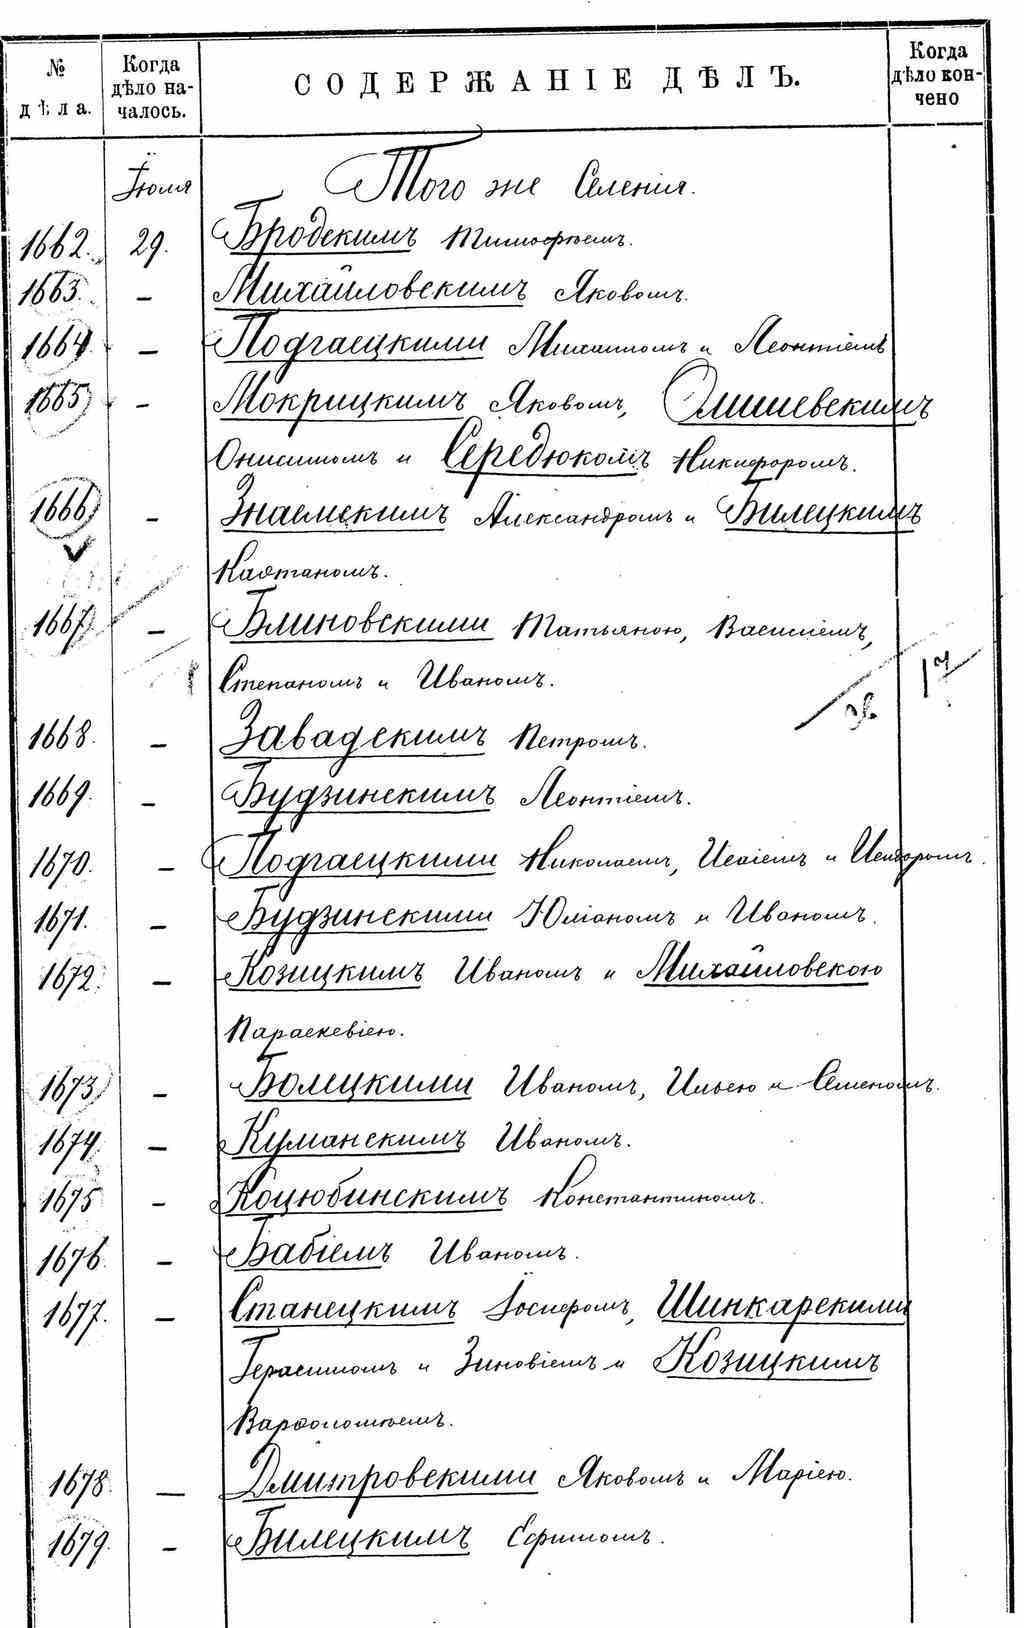 № дѣла. Когда дѣло началось. СОДЕРЖАНІЕ ДѢЛЪ. Когда дѣло кончено
Іюля Того же Селенія.
1662. 29. Бродскимъ Тимофѣемъ.
1663. — Михайловскимъ Яковомъ.
1664. — Подгаецкими Михаиломъ и Леонтіемъ
1665 — Мокрицкимъ Яковомъ, Олишевскимъ
Онисимомъ и Середюкомъ Никифоромъ.
1666 — Знаемскимъ Александромъ и Билецкимъ
Каэтаномъ.
1667 — Блиновскими Татьяною, Василіемъ,
Степаномъ и Иваномъ.
17
1668. — Завадскимъ Петромъ.
1669. — Будзинскимъ Леонтіемъ.
1670. — Подгаецкими Николаемъ, Исаіемъ и Исидоромъ.
1671. — Будзинскими Юліаномъ и Иваномъ.
1672. — Козицкимъ Иваномъ и Михайловскою
Параскевіею.
1673 — Болецкими Иваномъ, Ильею и Семеномъ.
1674. — Куманскимъ Иваномъ.
1675 — Коцюбинскимъ Константиномъ.
1676. — Бабіемъ Иваномъ.
1677. — Станецкимъ Іосифомъ, Шинкарскими
Герасимомъ и Зиновіемъ и Козицкимъ
Варѳоломѣемъ.
1678. — Дмитровскими Яковомъ и Маріею.
1679. — Билецкимъ Ефимомъ.